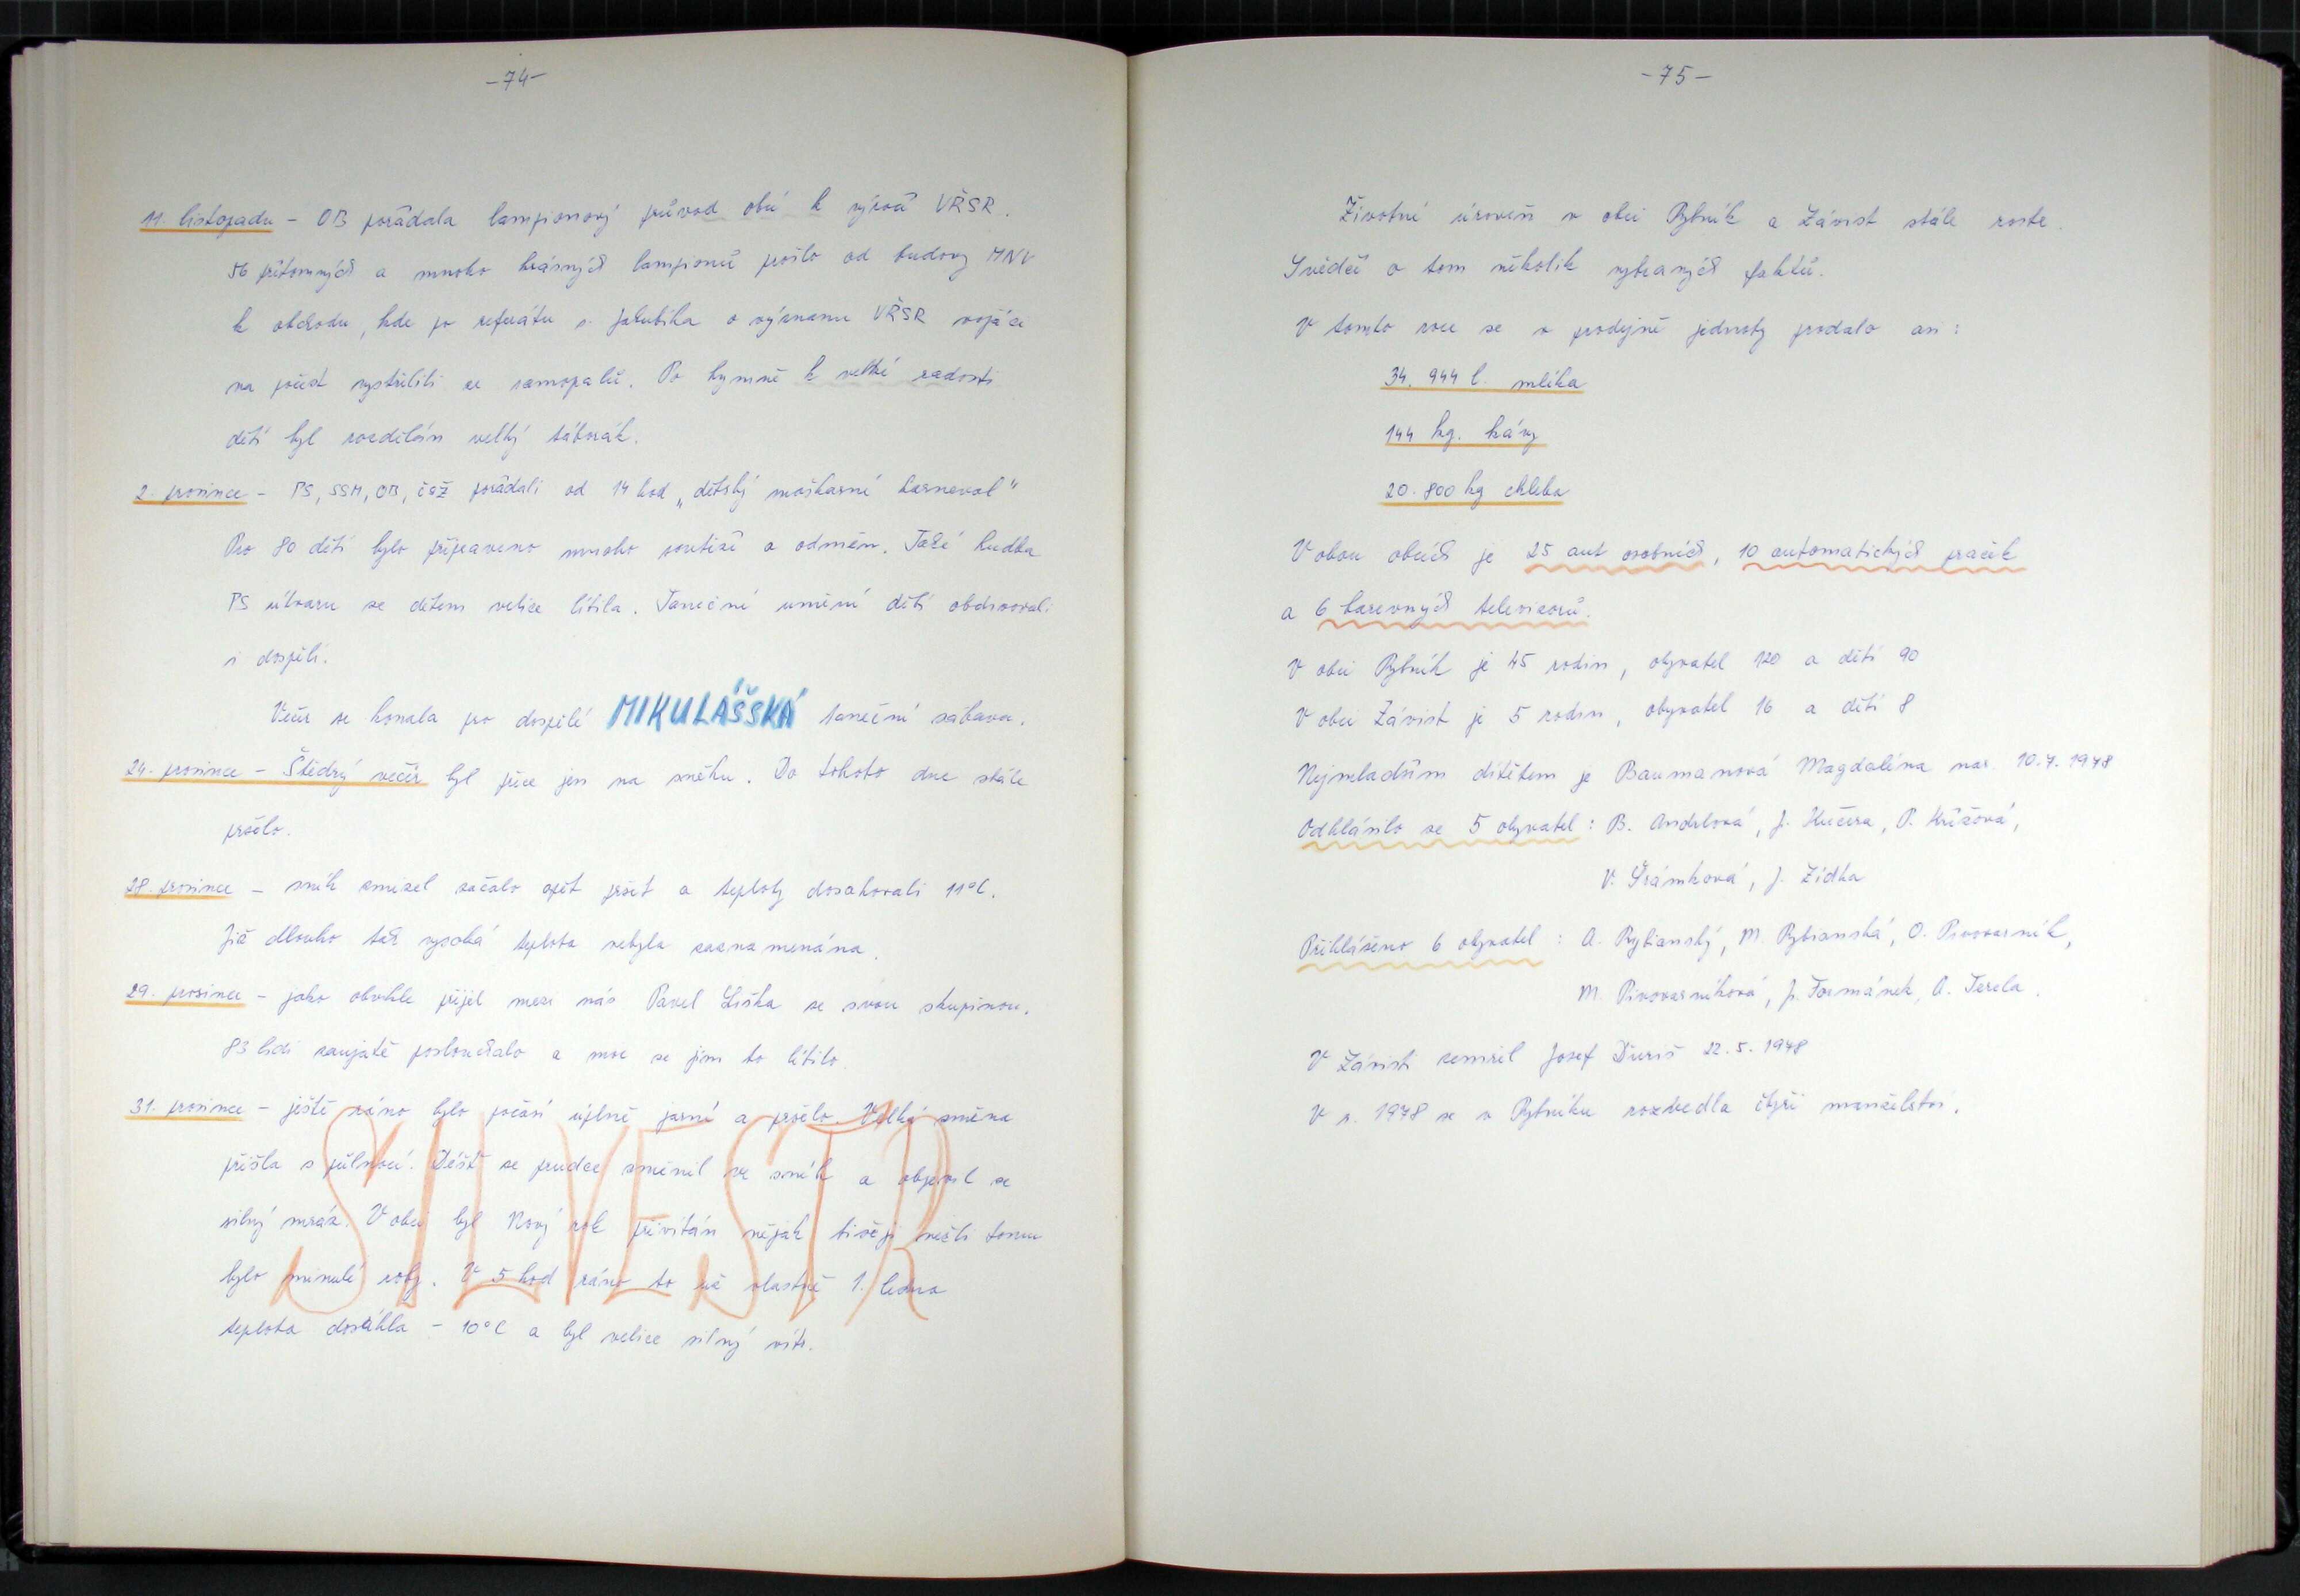 -74-
11. listopadu - OB pořádala lampionový průvod obcí k výročí VŘSR.
56 přítomných a mnoho krásných lampionů prošlo od budovy MNV
k obchodu, kde po referátu s. Jakubíka o významu VŘSR vojáci
na počest vystřelili ze samopalů. Po hymně k velké radosti
dětí byl rozdělán velký táborák.
2. prosince - PS, SSM, OB, ČSŽ pořádali od 14 hod „dětský maškarní karneval"
Pro 80 dětí bylo připraveno mnoho soutěží a odměn. Také hudba
PS útvaru se dětem velice líbila. Taneční umění dětí obdivovali
i dospělí.
Večer se konala pro dospělé MIKULÁŠSKÁ taneční zábava.
24. prosince - Štědrý večer byl přece jen na sněhu. Do tohoto dne stále
pršelo.
28. prosince - sníh zmizel začalo opět pršet a teploty dosahovali 11°C.
Již dlouho tak vysoká teplota nebyla zaznamenána.
29. prosince - jako obvykle přijel mezi nás Pavel Liška se svou skupinou.
83 lidí zaujatě poslouchalo a moc se jim to líbilo.
31. prosince - ještě ráno bylo počasí úplně jarní a pršelo. Velká změna
přišla s půlnocí. Déšť se prudce změnil ve sníh a objevil se
silný mráz. V obci byl Nový rok přivítán nějak tišeji nežli tomu
bylo minulé roky. V 5 hod ráno to už vlastně 1. ledna
teplota dosáhla - 10°C a byl velice silný vítr.
SILVESTR
-75-
Životní úroveň v obci Rybník a Závist stále roste.
Svědčí o tom několik vybraných faktů.
V tomto roce se v prodejně jednoty prodalo asi:
34.944 l. mléka
144 kg. kávy
20.800 kg chleba
V obou obcích je 25 aut osobních, 10 automatických praček
a 6 barevných televizorů.
V obci Rybník je 45 rodin, obyvatel 120 a dětí 90
V obci Závist je 5 rodin, obyvatel 16 a dětí 8
Nejmladším dítětem je Baumanová Magdaléna nar. 10.7.1978
Odhlásilo se 5 obyvatel: B. Andrlová, J. Kučera, P. Křížová,
V. Šrámková, J. Zídka
Přihlášeno 6 obyvatel: A. Rybianský, M. Rybianská, O. Pivovarník,
M. Pivovarníková, J. Formánek, A. Terela.
V Závisti zemřel Josef Ďuriš 22.5.1978
V r. 1978 se v Rybníku rozvedla čtyři manželství.